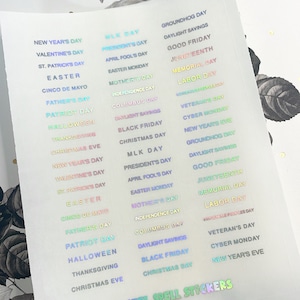 NEW YEAR'S DAY
VALENTINE'S DAY
ST. PATRICK'S DAY
EASTER
CINCO DE MAYO
PATRIOT'S DAY
PATRIOT DAY
HALLOWEEN
THANKSGIVING
CHRISTMAS EVE
NEW YEAR'S DAY
VALENTINE'S DAY
ST. PATRICK'S DAY
EASTER
CINCO DE MAYO
PATRIOT DAY
HALLOWEEN
THANKSGIVING
CHRISTMAS EVE
MLK DAY
PRESIDENT'S DAY
APRIL FOOL'S DAY
EASTER MONDAY
MOTHER'S DAY
INDEPENDENCE DAY
COLUMBUS DAY
DAYLIGHT SAVINGS
BLACK FRIDAY
CHRISTMAS DAY
MLK DAY
PRESIDENT'S DAY
APRIL FOOL'S DAY
EASTER MONDAY
MOTHER'S DAY
INDEPENDENCE DAY
COLUMBUS DAY
DAYLIGHT SAVINGS
BLACK FRIDAY
CHRISTMAS DAY
GROUNDHOG DAY
DAYLIGHT SAVINGS
GOOD FRIDAY
JUNETEENTH
MEMORIAL DAY
LABOR DAY
VETERAN'S DAY
CYBER MONDAY
NEW YEAR'S EVE
GROUNDHOG DAY
DAYLIGHT SAVINGS
GOOD FRIDAY
JUNETEENTH
MEMORIAL DAY
LABOR DAY
VETERAN'S DAY
CYBER MONDAY
NEW YEAR'S EVE
STICKERS